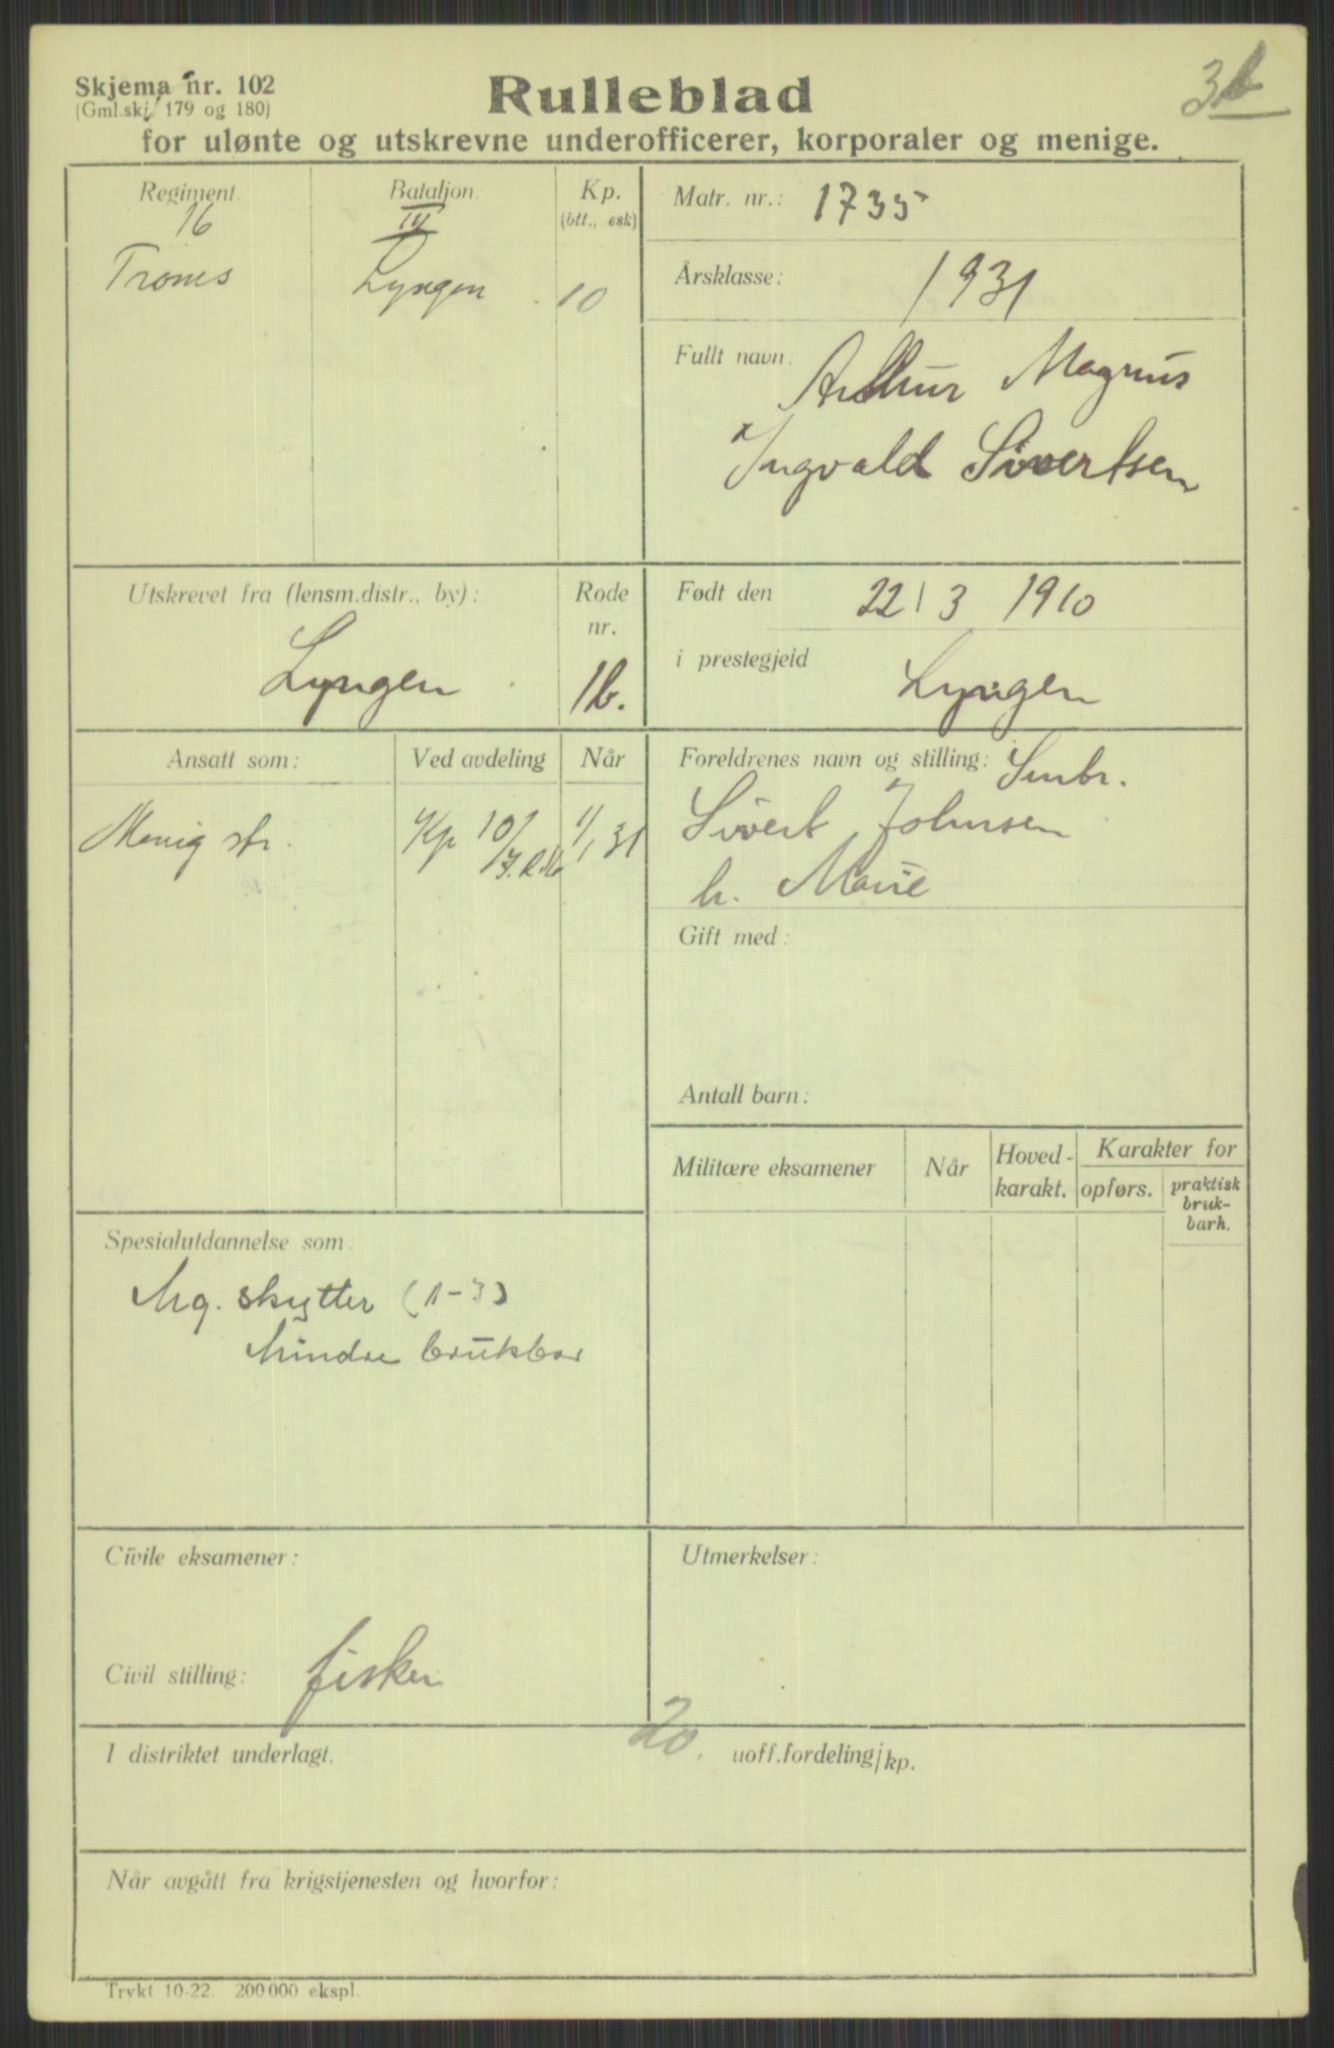 Skjema nr. 102
(Gml.skj. 179 og 180)
Rulleblad
for ulønte og utskrevne underofficerer, korporaler og menige.
Regiment.
16
Troms
Bataljon.
III
Lyngen
Kp.
(btt., esk)
10
Matr. nr.: 1735
Årsklasse: 1931
Fullt navn: Arthur Magnus
Ingvald Sivertsen
Utskrevet fra (lensm.distr., by):
Lyngen
Rode
nr.
1b.
Født den 22/3 1910
i prestegjeld Lyngen
Ansatt som:
Ved avdeling
Når
Menig str.
Kp 10/
1/1 31
Foreldrenes navn og stilling: Smbr.
Sivert Johnsen
h. Marie
Gift med:
Antall barn:
Militære eksamener
Når
Hoved-
karakt.
Karakter for
opførs.
praktisk
bruk-
barh.
Spesialutdannelse som:
Mg. skytter (1-3)
Mindre brukbar
Civile eksamener:
Civil stilling: fisker
Utmerkelser:
I distriktet underlagt.
20.
uoff.fordeling/kp.
Når avgått fra krigstjenesten og hvorfor:
Trykt 10-22. 200 000 ekspl.